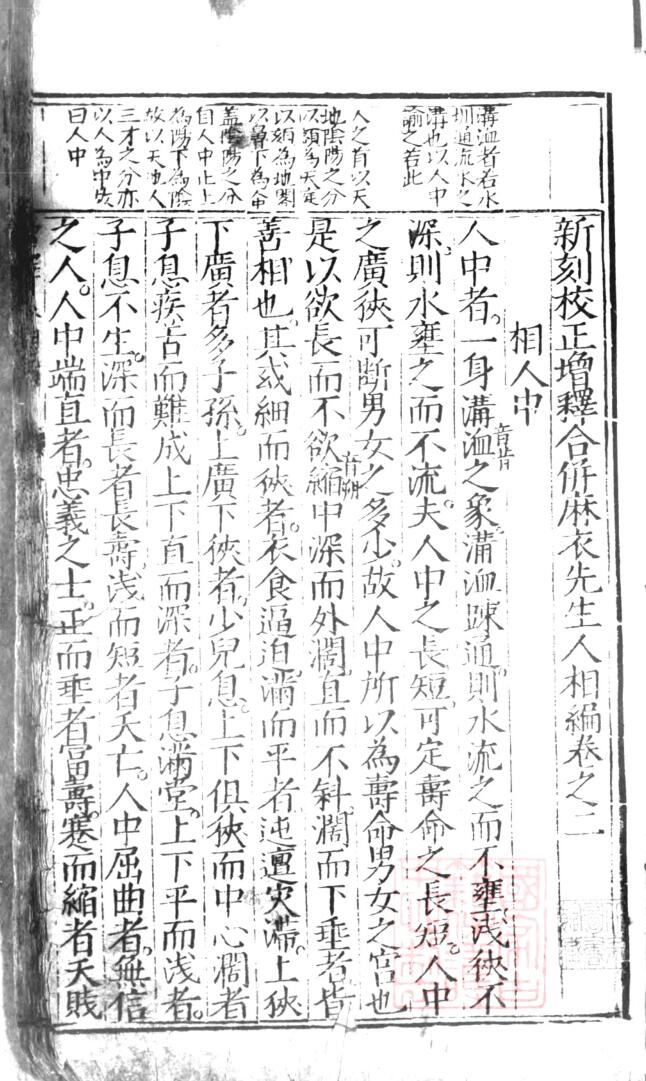 新刻校正增釋合併麻衣先生人相編卷之二
相人中
人中者。一身溝洫之象。溝洫踈通。則水流之而不壅。浅狹不
音皆
深。則水壅之而不流。夫人中之長短。可定壽命之長短。人中
之廣狹可断男女之多少。故人中所以為壽命男女之宫也
是以欲長而不欲縮中深而外濶。直而不斜。濶而下垂者皆
音朔
善相也。其或細而狹者。衣食逼迫。滿而平者迍邅灾滯。上狹
下廣者多子孫。上廣下狹者。少兒息。上下俱狹而中心濶者
子息疾苦而難成上下直而深者。子息滿堂。上下平而浅者。
子息不生。深而長者長壽。浅而短者夭亡。人中屈曲者。無信
之人。人中端直者。忠義之士。正而垂者富壽。蹇而縮者夭賎
溝洫者若水
圳通流水之
溝也以人中
諭之若此
人之首以天
地陰陽之分
以額為天定
以頦為地閣
以鼻下為人中
盖陰陽之分
自人中止上
為陽下為陰
故以天地人
三才之分亦
以人為中故
曰人中